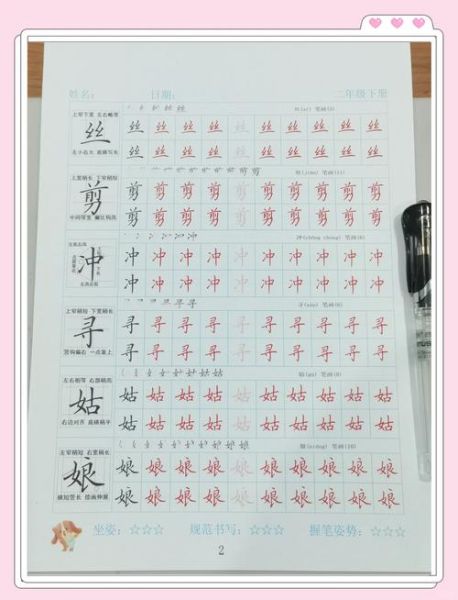 姓名： 日期： 二年级下册
上窄下宽 左右略等 丝(sī) 笔画(5)
丝 丝 丝 丝 丝 丝 丝 丝 丝 丝
丝 丝 丝 丝 丝 丝 丝 丝 丝
上宽稍长 下窄稍短 剪(jiǎn) 笔画(11)
剪 剪 剪 剪 剪 剪 剪 剪 剪 剪
剪 剪 剪 剪 剪 剪 剪 剪 剪
冲(chōng chòng) 笔画(6)
冲 冲 冲 冲 冲 冲 冲 冲 冲 冲
冲 冲 冲 冲 冲 冲 冲 冲 冲
左高右低
上窄稍短 下宽稍长 寻(xún) 笔画(6)
寻 寻 寻 寻 寻 寻 寻 寻 寻 寻
寻 寻 寻 寻 寻 寻 寻 寻 寻
竖钩偏右 一点靠上
左右相等 右部稍高 姑(gū) 笔画(8)
姑 姑 姑 姑 姑 姑 姑 姑 姑 姑
姑 姑 姑 姑 姑 姑 姑 姑 姑
右边对齐 底横稍平
左窄稍短 右宽稍长 娘(niáng) 笔画(10)
娘 娘 娘 娘 娘 娘 娘 娘 娘 娘
娘 娘 娘 娘 娘 娘 娘 娘 娘
横短竖长 捺画伸展
坐姿：☆☆☆ 规范书写：☆☆☆ 握笔姿势：☆☆☆
2